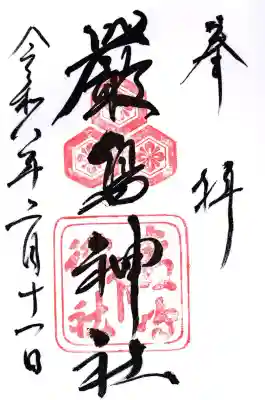 奉拝
嚴島神社
令和八年二月十一日